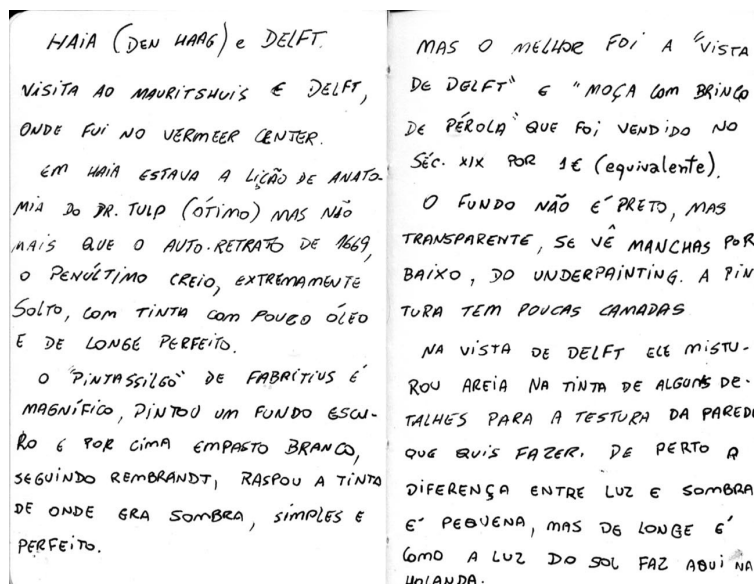 HAIA (DEN HAAG) e DELFT.
VISITA AO MAURITSHUIS E DELFT,
ONDE FUI NO VERMEER CENTER.
EM HAIA ESTAVA A LIÇÃO DE ANATO-
MIA DO DR. TULP (ÓTIMO) MAS NÃO
MAIS QUE O AUTO-RETRATO DE 1669,
O PENÚLTIMO CREIO, EXTREMAMENTE
SOLTO, COM TINTA COM POUCO ÓLEO
E DE LONGE PERFEITO.
O "PINTASSILGO" DE FABRITIUS É
MAGNÍFICO, PINTOU UM FUNDO ESCU-
RO E POR CIMA EMPASTO BRANCO,
SEGUINDO REMBRANDT, RASPOU A TINTA
DE ONDE ERA SOMBRA, SIMPLES E
PERFEITO.
MAS O MELHOR FOI A "VISTA
DE DELFT" E "MOÇA COM BRINCO
DE PÉROLA" QUE FOI VENDIDO NO
SÉC. XIX POR 1€ (equivalente).
O FUNDO NÃO É PRETO, MAS
TRANSPARENTE, SE VÊ MANCHAS POR
BAIXO, DO UNDERPAINTING. A PIN
TURA TEM POUCAS CAMADAS
NA VISTA DE DELFT ELE MISTU-
ROU AREIA NA TINTA DE ALGUNS DE-
TALHES PARA A TESTURA DA PAREDE
QUE QUIS FAZER. DE PERTO A
DIFERENÇA ENTRE LUZ E SOMBRA
É PEQUENA, MAS DE LONGE É
COMO A LUZ DO SOL FAZ AQUI NA
HOLANDA.